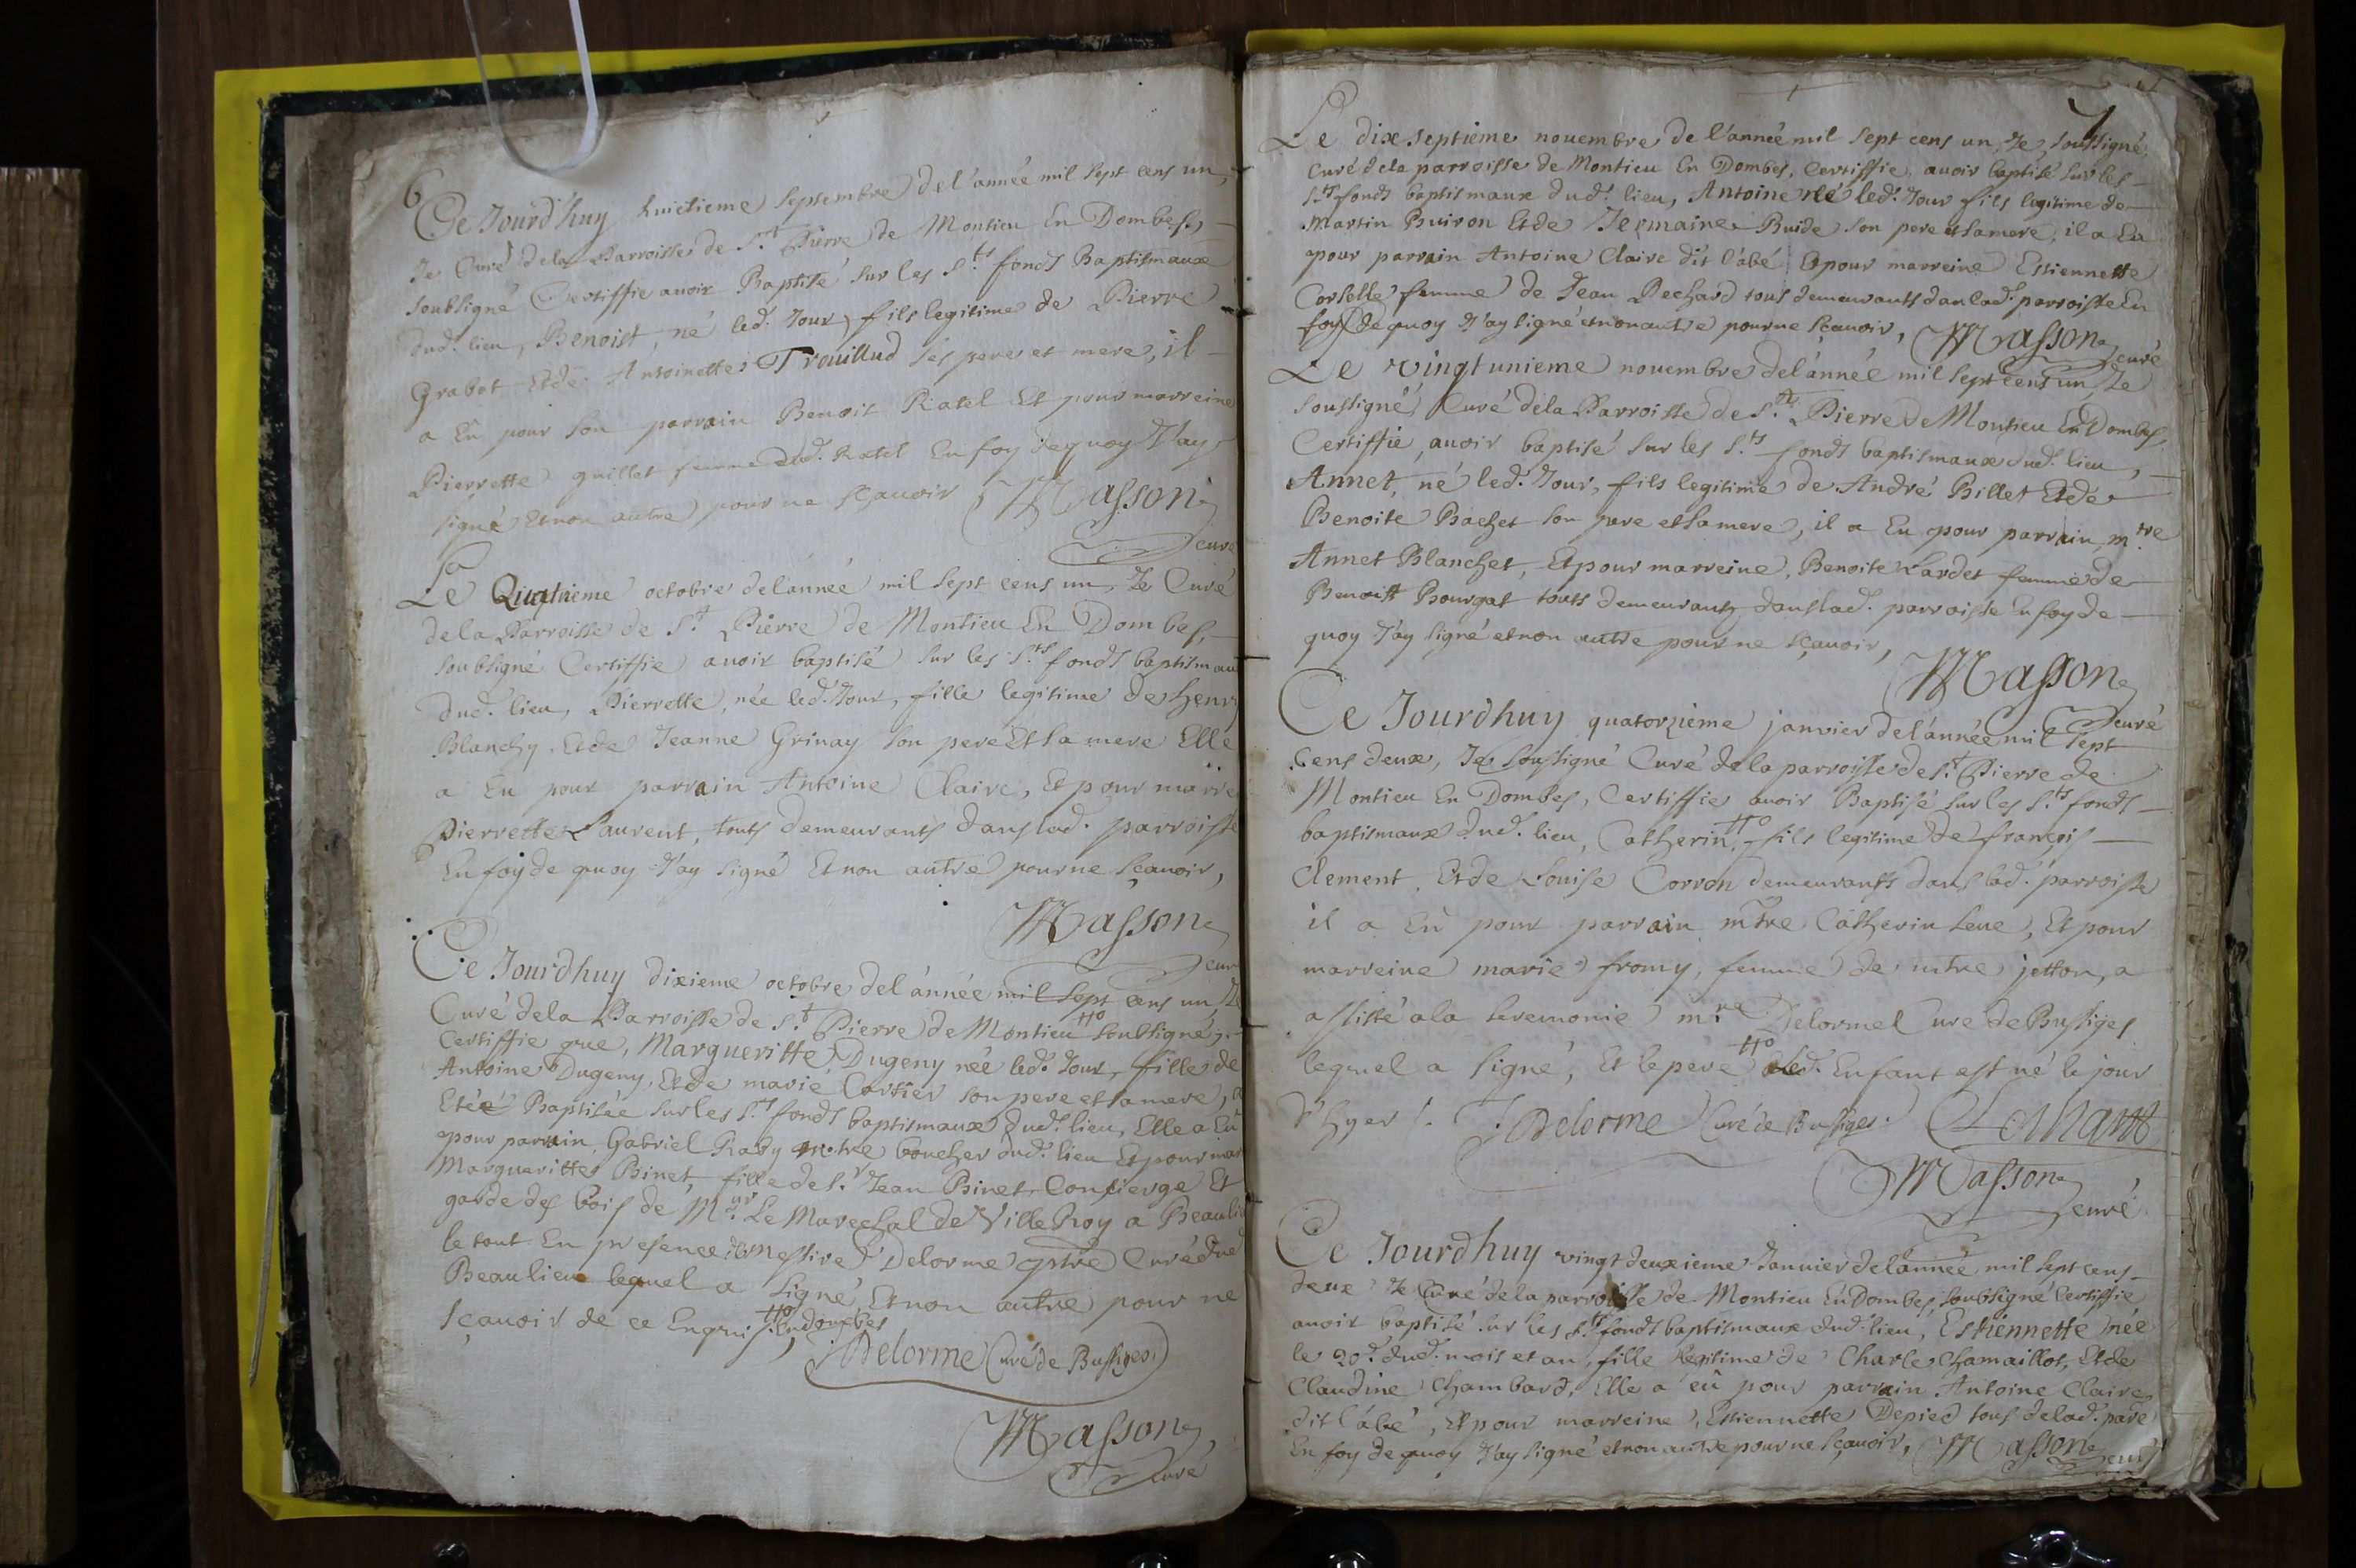 6
Ce Jourd'huy huictieme Septembre de l'année mil Sept cens un,
Je Curé dela Parroisse de St. Pierre de Montieu En Dombes,
soubsigné Certiffie avoir Baptisé sur les Sts. fonds Baptismaux
dud. lieu, Benoist, né led. Jour, fils legitime de Pierre
Grabot Et de Antoinette Trouillud ses pere et mere, il
a Eu pour son parrain Benoit Ratel Et pour marreine
Pierrette guillet femme dud. Ratel En foy dequoy J'ay
signé Et non autre pour ne sçavoir Masson
curé
Le Quatrieme octobre del'année mil Sept cens un, Je Curé
dela Parroisse de St. Pierre de Montieu En Dombes,
soubsigné Certiffie avoir baptisé sur les Sts. fonds baptismau
dud. lieu, Pierrette, née led. Jour, fille legitime de henry
Blanchy, Et de Jeanne Grinay son pere Et sa mere Elle
a Eu pour parrain Antoine Claire, Et pour marre
Pierrette Laurent, touts demeurants dans lad. parroisse
En foy de quoy J'ay signé Et non autre pour ne sçavoir,
Masson
cur
Ce Jourdhuy dixieme octobre del'année mil Sept cens un, Je
Curé dela Parroisse de St. Pierre de Montieu Ho soubsigné,
Certiffie que, Margueritte Dugeny née led. Jour, fille de
Antoine Dugeny, Et de marie Cartier son pere et sa mere, a
Etée Baptisée sur les Sts. fonds baptismaux dud. lieu, Elle a Eu
pour parrain, Gabriel Raby mtre boucher dud. lieu Et pour mar
Margueritte Binet, fille de Sr. Jean Binet Consierge Et
garde des bois de Mgr. Le Marechal de VilleRoy a Beauli
le tout En presence de Messire Delorme ptre Curé dud
Beaulieu lequel a signé, Et non autre pour ne
sçavoir de ce Enquis, Ho En dombes
Delorme Curé de Bussiges
Masson
Curé
7
Le dix septième novembre de l'année mil sept cens un, Je soussigné,
Curé dela parroisse de Montieu En Dombes, Certiffie, avoir baptisé sur les
Sts. fonds baptismaux dud. lieu, Antoine né led. Jour fils legitime de
Martin Buiron Et de Jermaine Buide son pere et sa mere, il a Eu
pour parrain Antoine Claire dit l'abé Et pour marreine Estiennette
Corselle femme de Jean Bechard tous demeurants dans lad. parroisse En
foy de quoy J'ay signé et non autre pour ne sçavoir, Masson
curé
Le vingt unieme novembre del'année mil Sept cens un, Je
soussigné Curé dela Parroisse de St. Pierre de Montieu En Dombes,
Certiffie, avoir baptisé sur les Sts. fonds baptismaux dud. lieu,
Annet, né led. Jour, fils legitime de André Billet Et de
Benoite Bachet son pere et sa mere, il a Eu pour parrain, mtre
Annet Blanchet, Et pour marreine, Benoite Lardet femme de
Benoist Bourgat touts demeurants dans lad. parroisse En foy de
quoy J'ay signé et non autre pour ne sçavoir,
Masson
curé
Ce Jourdhuy quatorzième janvier del'année mil Sept
Cens deux, Je soussigné Curé dela parroisse de St. Pierre de
Montieu En Dombes, Certiffie avoir Baptisé sur les Sts. fonds
baptismaux dud. lieu, Catherin, Ho fils legitime de françois
Clement, Et de Louise Corron demeurants dans lad. parroisse
il a Eû pour parrain mtre Catherin Leue, Et pour
marreine marie fromy, femme de mtre jetton, a
assisté a la Ceremonie mre Delorme Curé de Bussiges
lequel a signé, Et le pere Ho led. Enfant est né le jour
d'hyer. Delorme Curé de Bussiges
Masson
curé
Ce Jourdhuy vingt deuxieme Janvier del'année mil sept cens
deux Je Curé de la parroisse de Montieu En Dombes, soubsigné Certiffie
avoir baptisé sur les Sts. fonds baptismaux dud. lieu, Estiennette née
le 20e. dud. mois et an, fille legitime de Charle Chamaillot, Et de
Claudine Chambard, Elle a eû pour parrain Antoine Claire
dit l'abé, Et pour marreine, Estiennette Depied tous de lad. parre
En foy de quoy J'ay signé et non autre pour ne sçavoir, Masson
curé